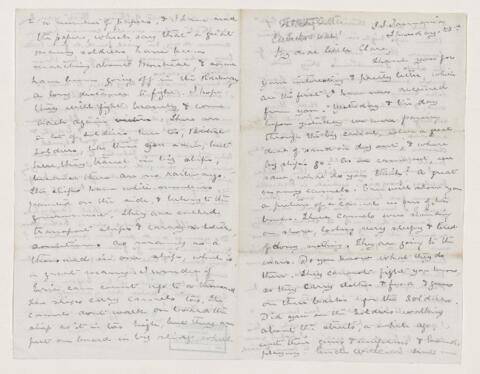 My dear little Clare,
Thank you for
your interesting & pretty letter, which
are the first I have ever received
from you. Yesterday & the day
before yesterday we were passing
through the big canal, where a great
deal of sand is dug out, & where
big ships go. As we came out, we
saw, what do you think? a great
many camels. I will show you
a picture of a camel in one of the
books. These camels were standing
on shore, looking very sleepy & tired
& doing nothing. They are going to the
wars. Do you know what they do
there. They cannot fight you know
so they carry clothes & food & guns
on their backs for the soldiers.
Did you see the soldiers walking
about the streets, a while ago,
with their guns & & bands
playing. Uncle sends me
a number of papers, & I have read
the papers, which say that a great
many soldiers have been
marching about & some
have been going off in the Railways
a long distance to fight. I hope
they will fight bravely & come
back again. There are
a lot of soldiers here too, British
soldiers, like those you know, but
here, they travel in big ships,
because there are no railways.
The ships have white numbers
painted on the side, & belong to the
government. They are called
transport ships & carry soldiers
sometimes. As many as a
thousand in one ship, which is
a great many. I wonder if
can count up to a thousand
The ships carry camels too. The
camels don't walk on board the
ship as it is too high, but they are
put on board in big slings, which